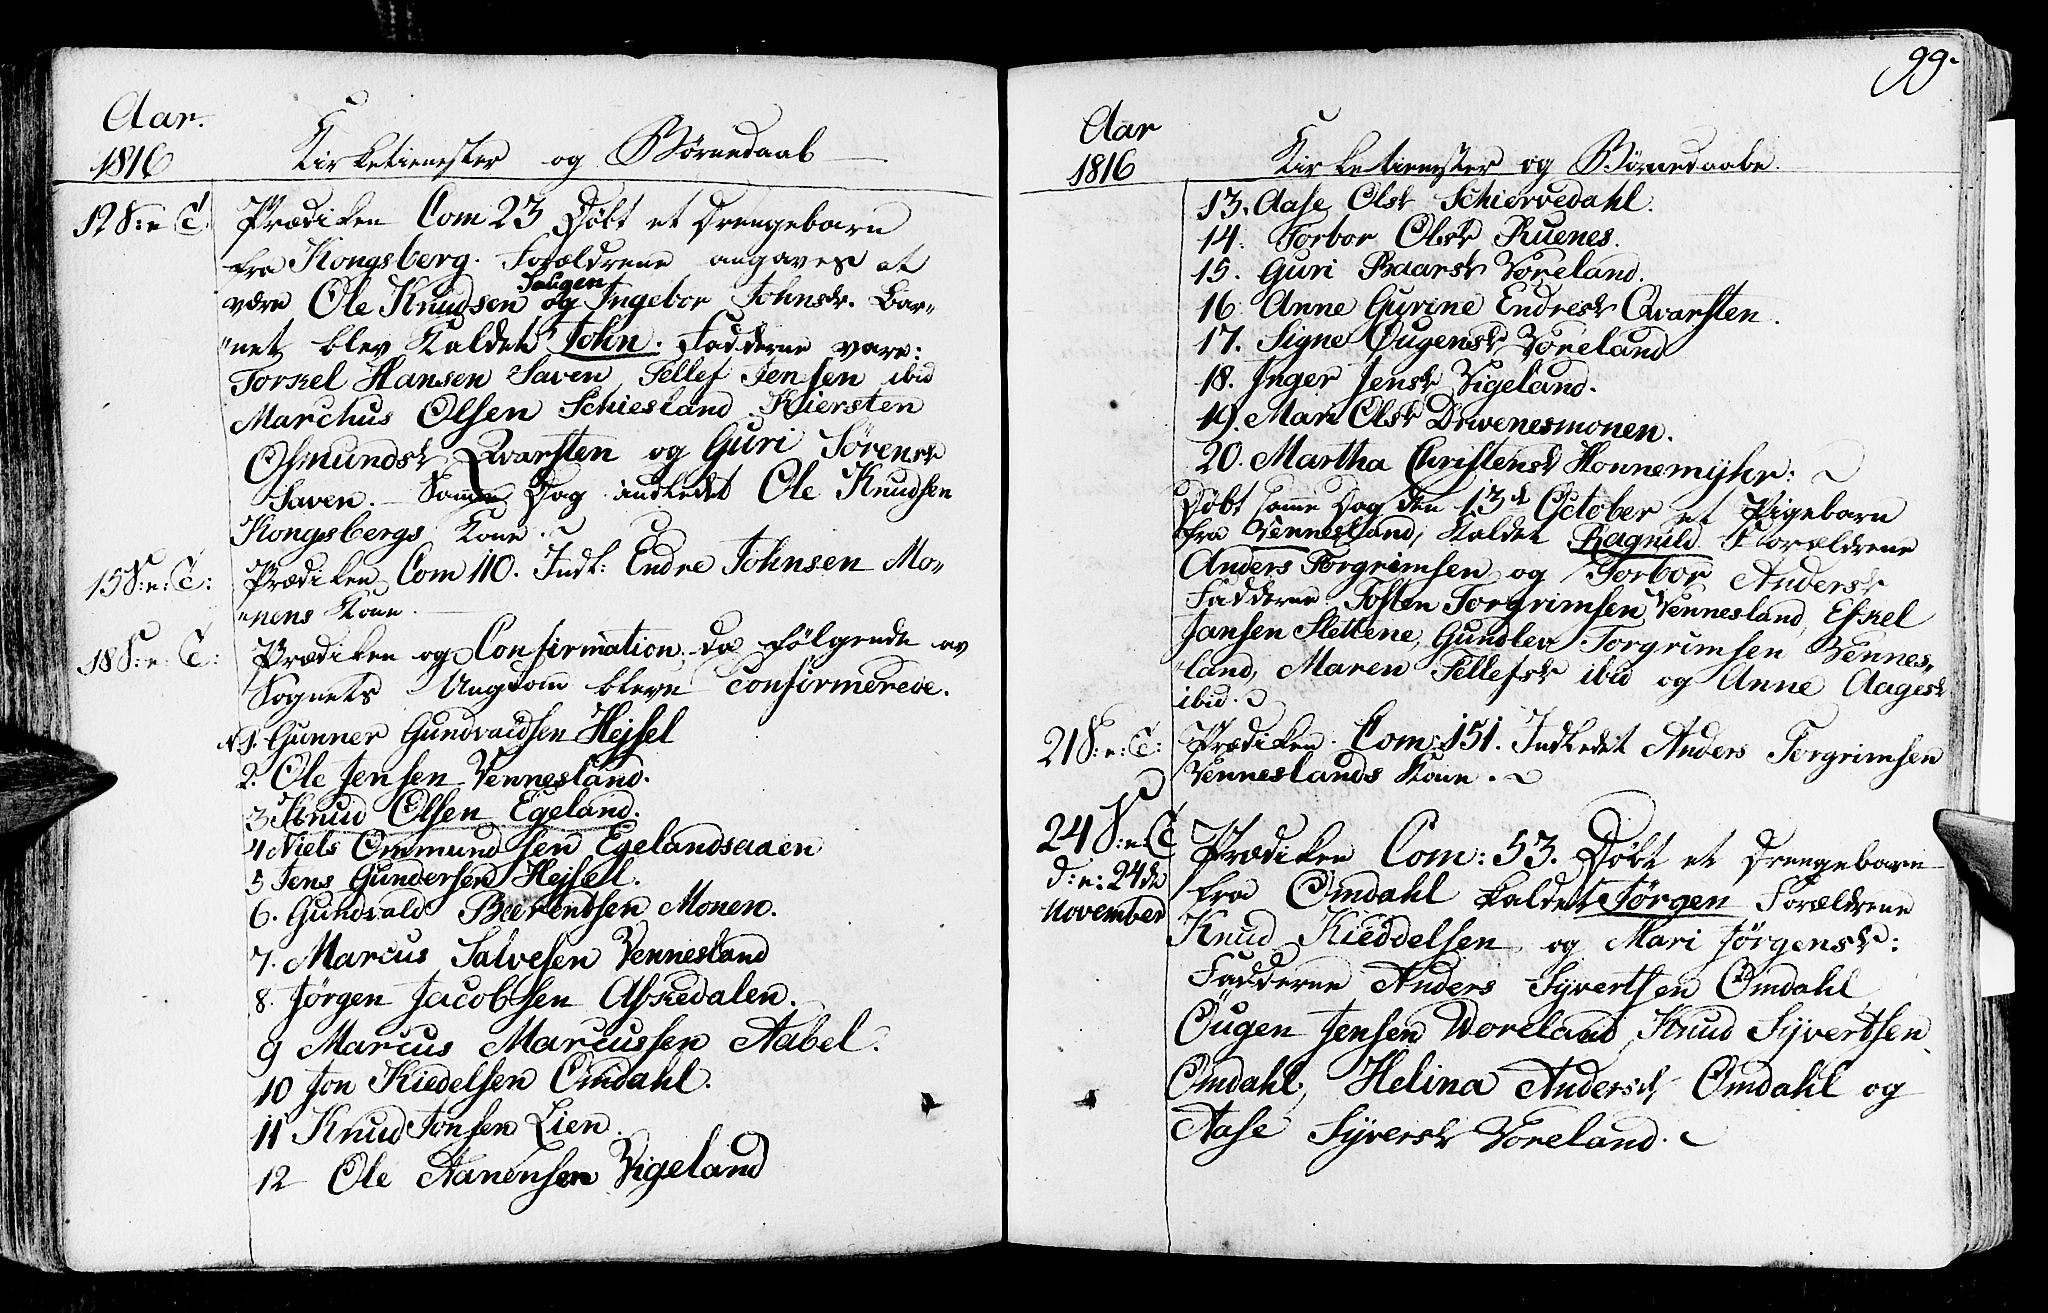 Aar.
1816 Kirketienester og Børnedaab
12 S: e: T: Prædiken Com 23 Døbt et Drengebarn
fra Kongsberg. Forældrene angaves at
være Ole Knudsen Saugen og Ingebor Johnsdr. Bar„
„net blev kaldet John. Fadderne vare:
Torkel Hansen Saven Tellef Jensen ibid
Marchus Olsen Schiesland Kiersten
Osmundsdr Qvarsten og Guri Sørensdr
Saven. Samme Dag indledet Ole Knudsen
Kongsbergs Kone.
15 S: e: T: Prædiken Com 110. Indl: Endre Johnsen Mo„
„nens Kone.
18 S: e: T: Prædiken og Confirmation, da følgende av
Sognets Ungdom bleve Confirmerede.
N 1. Gunner Gundvaldsen Hejsel
2. Ole Jensen Vennesland.
3 Knud Olsen Egeland.
4 Niels Ommundsen Egelandsaaen
5 Jens Gundersen Hejsell.
6. Gundvald Beerentsen Monen.
7. Marcus Salvesen Vennesland
8. Jørgen Jacobsen Abskedalen.
9 Marcus Marcussen Aabel.
10 Jon Kiedelsen Omdahl.
11 Knud Jonsen Lien.
12 Ole Aanensen Vigeland
99.
Aar
1816 Kirketienester og Børnedaabe.
13. Aase Olsdr Schiervedahl.
14. Torbor Olsdr Ruenes.
15. Guri Baarsdr Voreland.
16 Anne Gurine Endresdr Qvarsten.
17. Signe Ougensdr Voreland
18. Inger Jensdr Vigeland.
19. Mari Olsdr Drivenesmonen.
20. Martha Christensdr Honnemyhr:
Døbt samme Dag den 13de October et Pigebarn
fra Vennesland, kaldet Ragnild Forældrene
Anders Torgrimsen og Torbor Andersdr
Fadderne Tosten Torgrimsen Vennesland, Eskel
Jansen Slettene, Gundlev Torgrimsen Vennes„
„land, Maren Tellefsdr ibid og Anne Aagesdr
ibid.
21 S: e: T: Prædiken. Com: 151. Indledet Anders Torgrimsen
Venneslands Kone.
24 S: e: T Prædiken Com: 53. Døbt et Drengebarn
d: e: 24de fra Omdahl kaldet Jørgen Forældrene
November Knud Kieddelsen og Mari Jørgensdr:
Fadderne Anders Syvertsen Omdahl
Ougen Jensen Voreland, Knud Syvertsen
Omdahl, Helina Andersdr Omdahl og
Aase Syversdr Voreland.